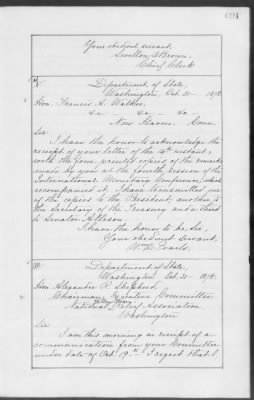 Your obedient servant,
Sevellon A. Brown,
Chief Clerk
Department of State,
Washington, Oct. 21 1878.
Hon. Francis A. Walker,
New Haven, Conn.
Sir
I have the honor to acknowledge the
receipt of your letter of the 19th instant,
with the four printed copies of the remarks
made by you at the fourth session of the
International Monetary Conference, which
accompanied it. I have transmitted one
of the copies to the President, another to
the Secretary of the Treasury and a third
to Senator Allison.
I have the honor to be, Sir,
Your obedient servant,
Wm. M. Evarts.
Department of State,
Washington, Oct. 21 1878.
Hon. Alexander R. Shepherd,
Chairman, Executive Committee
National Relief Association
Washington
Sir
I am this morning in receipt of a
communication from your Committee
under date of Oct. 19th. I regret that I